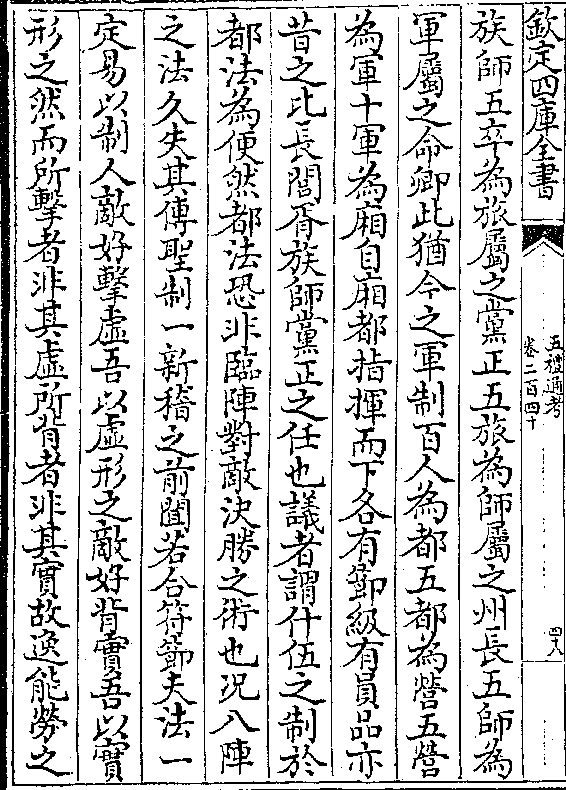 欽定四庫全書
五禮通考
卷二百四十
四十八
族師五卒為旅屬之黨正五旅為師屬之州長五師為
軍屬之命卿此猶今之軍制百人為都五都為營五營
為軍十軍為廂自廂都指揮而下各有節級有員品亦
昔之比長閭胥族師黨正之任也議者謂什伍之制於
都法為便然都法恐非臨陣對敵決勝之術也況八陣
之法久失其傳聖制一新稽之前聞若合符節夫法一
定易以制人敵好擊虛吾以虛形之敵好背實吾以實
形之然而所擊者非其虛所背者非其實故逸能勞之